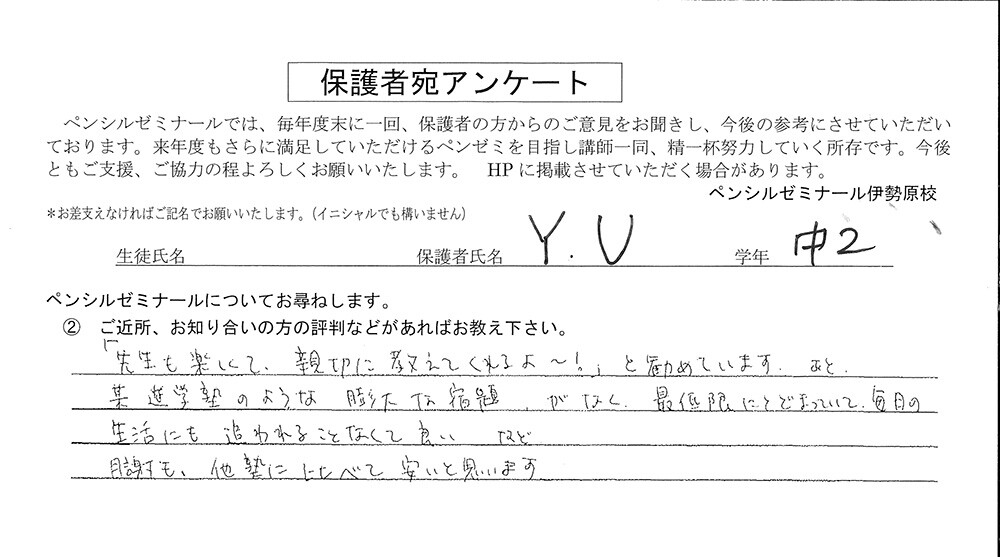 保護者宛アンケート
ペンシルゼミナールでは、毎年度末に一回、保護者の方からのご意見をお聞きし、今後の参考にさせていただい
ております。来年度もさらに満足していただけるペンゼミを目指し講師一同、精一杯努力していく所存です。今後
ともご支援、ご協力の程よろしくお願いいたします。　HPに掲載させていただく場合があります。
ペンシルゼミナール伊勢原校
*お差支えなければご記名でお願いいたします。(イニシャルでも構いません)
生徒氏名　保護者氏名 Y.U 学年 中2
ペンシルゼミナールについてお尋ねします。
② ご近所、お知り合いの方の評判などがあればお教え下さい。
「先生も楽しくて、親切に教えてくれるよ～!」と勧めています。あと、
某進学塾のような膨大な宿題、がなく、最低限にとどまっていて、毎日の
生活にも追われることなくて良い など
月謝も、他塾にくらべて安いと思います